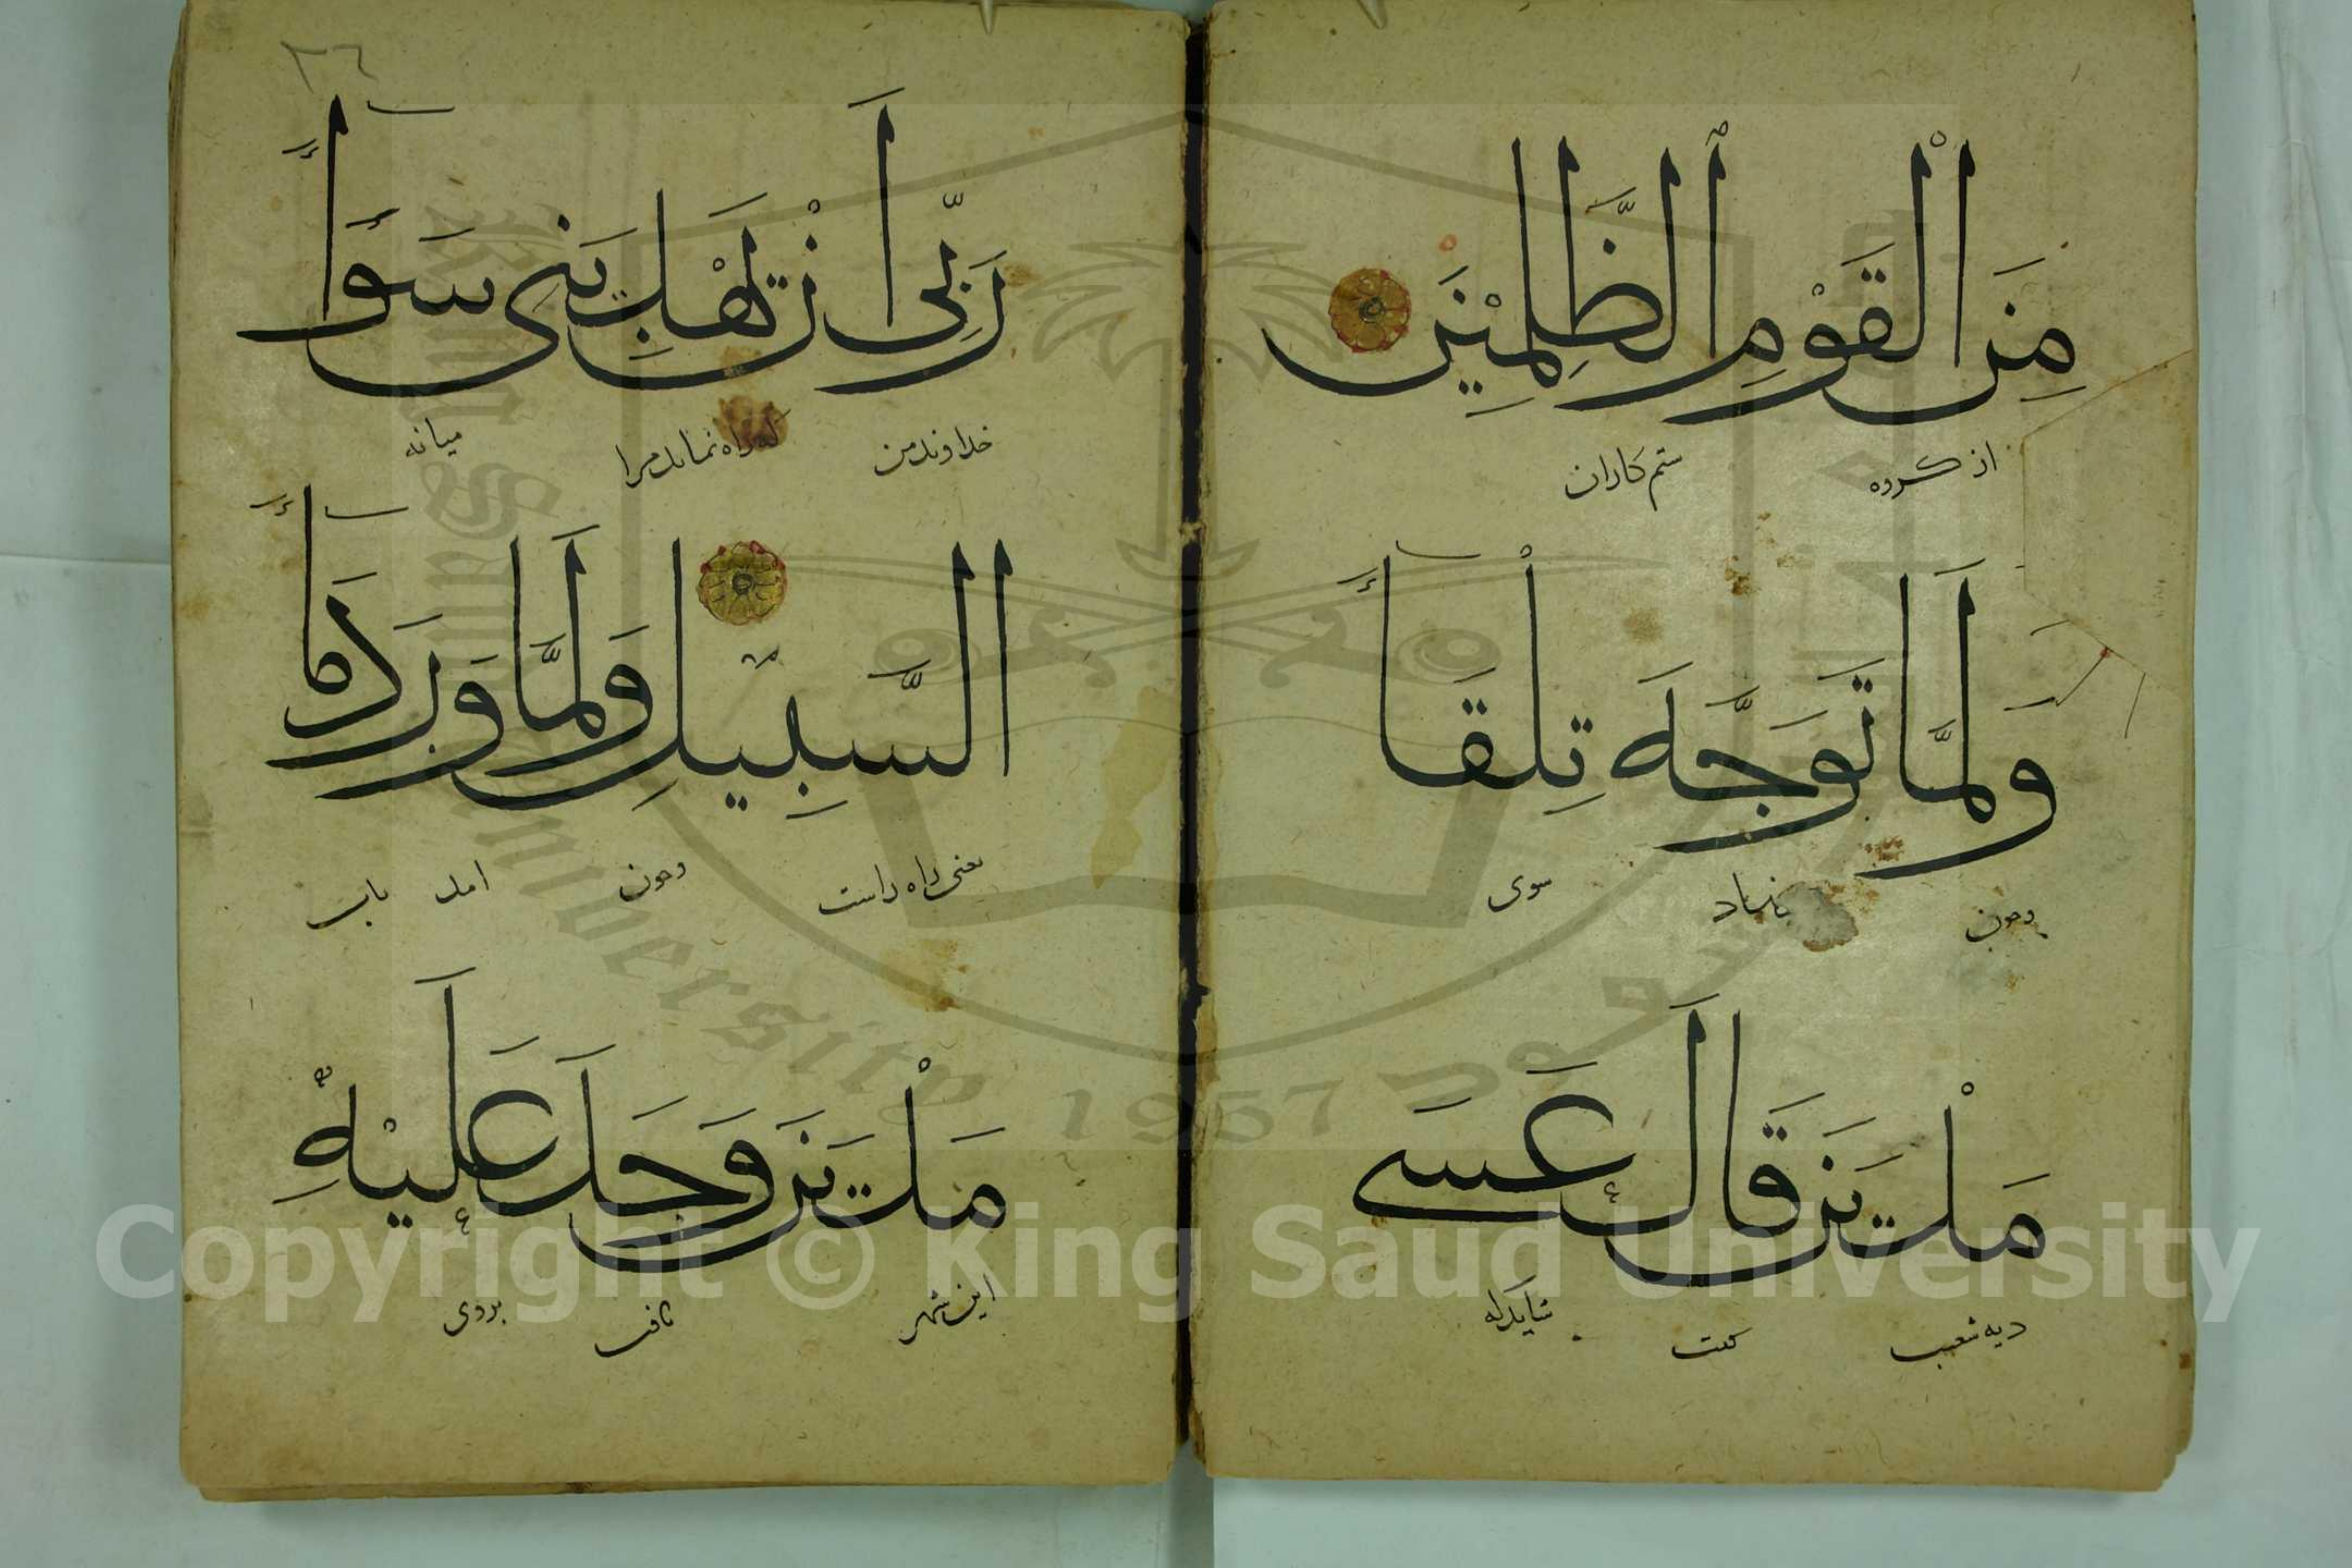 مِنَ الْقَوْمِ الظَّلِمِيْنَ
از کروه ستم کاران
وَلَمَّا تَوَجَّهَ تِلْقَاءَ
وجون سوی
مَدْيَنَ قَالَ عَسَى
دیه شعیب کفت شاید که
٢٦
رَبِّى أَنْ يَهْدِيَنِى سَوَاءَ
خداوند من که راه نماید مرا میانه
السَّبِيْلِ وَلَمَّا وَرَدَ مَاءَ
یعنی راه راست وجون امد باب
مَدْيَنَ وَجَدَ عَلَيْهِ
این شهر یافت بروی
King Saud University
1957
Copyright © King Saud University